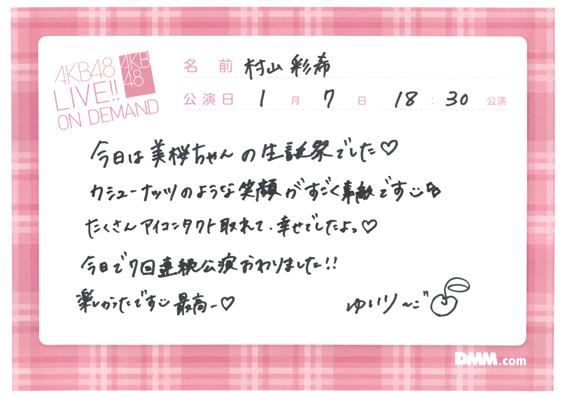 AKB48
LIVE!!
ON DEMAND
AKB
48
名前 村山彩希
公演日 1月7日 18:30公演
今日は美桜ちゃんの生誕祭でした♡
カシューナッツのような笑顔がすごく素敵です
たくさんアイコンタクト取れて、幸せでしたよっ♡
今日で7回連続公演おわりました!!
楽しかったです 最高ー♡
ゆいりー
DMM.com